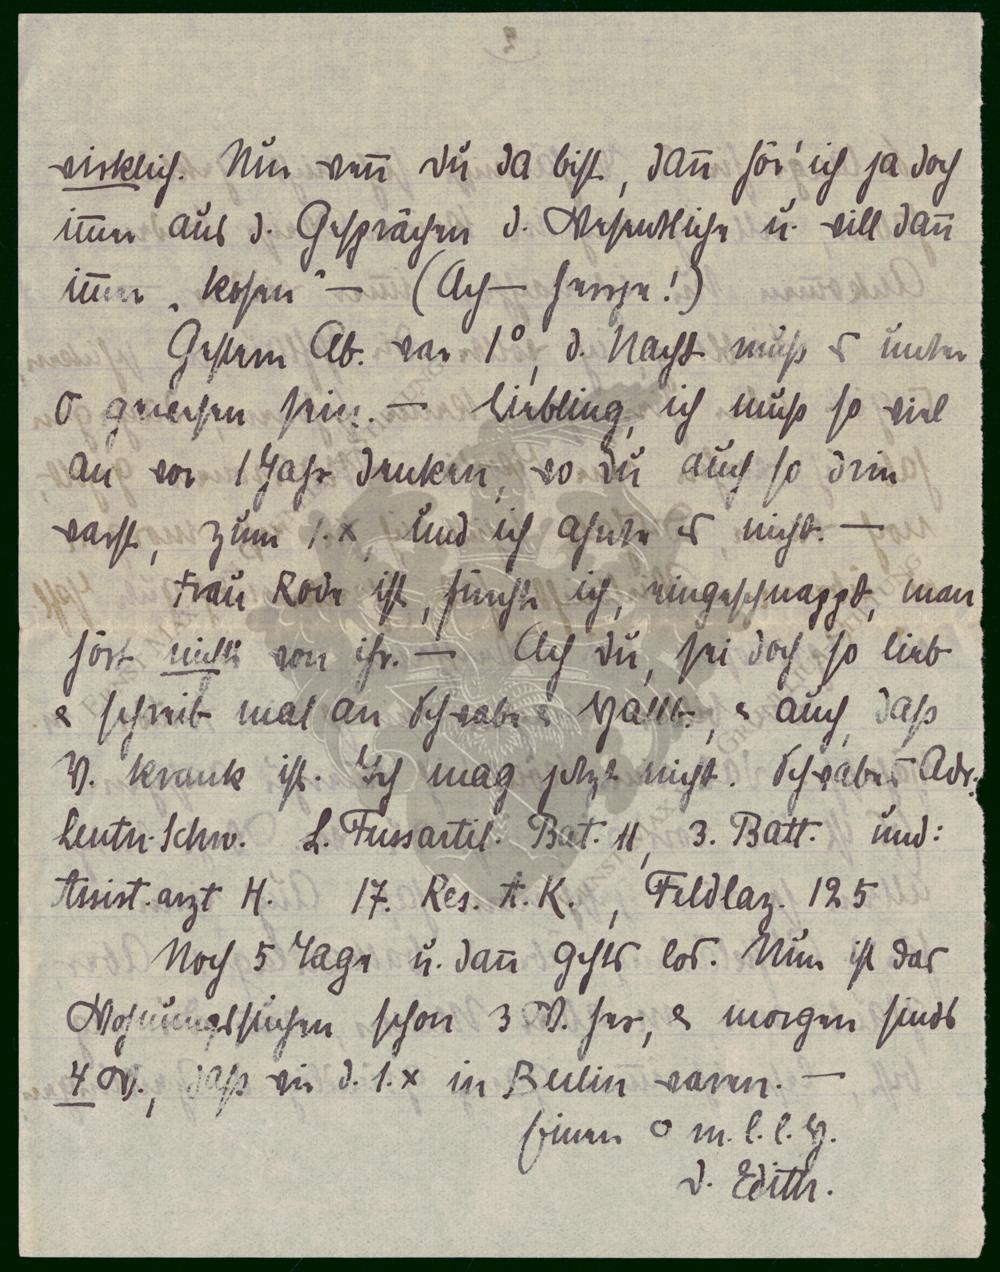 wirklich. Nur wen̄ du da bist, dan̄ hör' ich ja doch
im̄er aus d. Gesprächen d. Wesentliche u. will dan̄
im̄er „kosen" — (Ach — herrje!)
Gestern Ab. war 1°, d. Nacht muß es unter
0 gewesen sein. — Liebling, ich muß so viel
an vor 1 Jahr denken, wo du auch so drin
warst, zum 1. x, und ich ahnte es nicht. —
Frau Rode ist, fürcht ich, eingeschnappt, man
hört nichts von ihr. — Ach du, sei doch so lieb
& schreib mal an Schwabe & , & auch, daß
V. krank ist. Ich mag jetzt nicht. Schwabes Adr.:
Leutn. Schw. L. Fussartil. Bat. 11, 3. Batt. und:
Assist.arzt H. 17. Res. A. K., Feldlaz. 125
Noch 5 Tage u. dan̄ gehts los. Nun ist das
Wohnungssuchen schon 3 W. her, & morgen sinds
4 W., daß wir d. 1. x in Berlin waren. —
Einen o m. l. l. 
d. Edith.